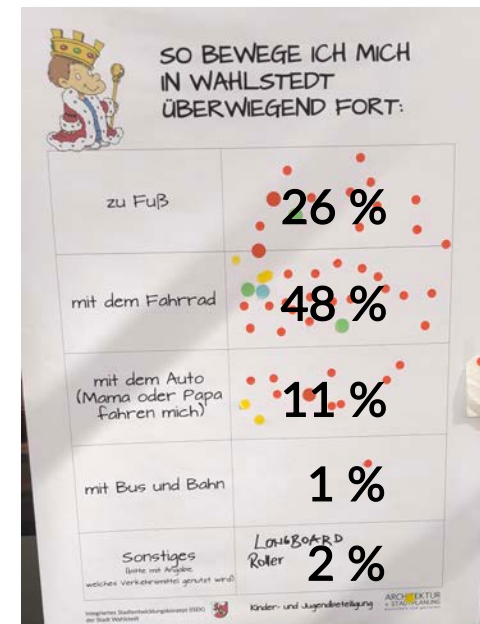 SO BEWEGE ICH MICH
IN WAHLSTEDT
ÜBERWIEGEND FORT:
zu Fuß
26 %
mit dem Fahrrad
48 %
mit dem Auto
(Mama oder Papa
fahren mich)
11 %
mit Bus und Bahn
1 %
Sonstiges
(bitte mit Angabe,
welches Verkehrsmittel genutzt wird)
LONGBOARD
Roller
2 %
Integriertes Stadtentwicklungskonzept (ISEK)
der Stadt Wahlstedt
Kinder- und Jugendbeteiligung
ARCHITEKTUR
+ STADTPLANUNG